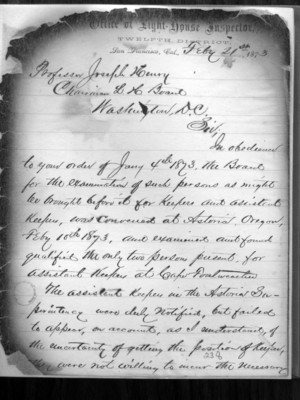 Office of Light-House Inspector,
TWELFTH DISTRICT,
San Francisco, Cal., Feby 21st 1873
Professor Joseph Henry
Chairman L. H. Board
Washington D.C.
Sir,
In obedience
to your order of Jany 4th 1873, the Board
for the examination of such persons as might
be brought before it for Keepers and assistant
Keepers, was convened at Astoria, Oregon,
Feby 10th 1873, and examined and found
qualified the only two persons present, for
assistant Keepers at Cape
The assistant Keepers in the Astoria Su-
perintency were duly notified, but failed
to appear, on account, as I understand, of
the uncertainty of getting the position of Keeper,
they were not willing to incur the necessary